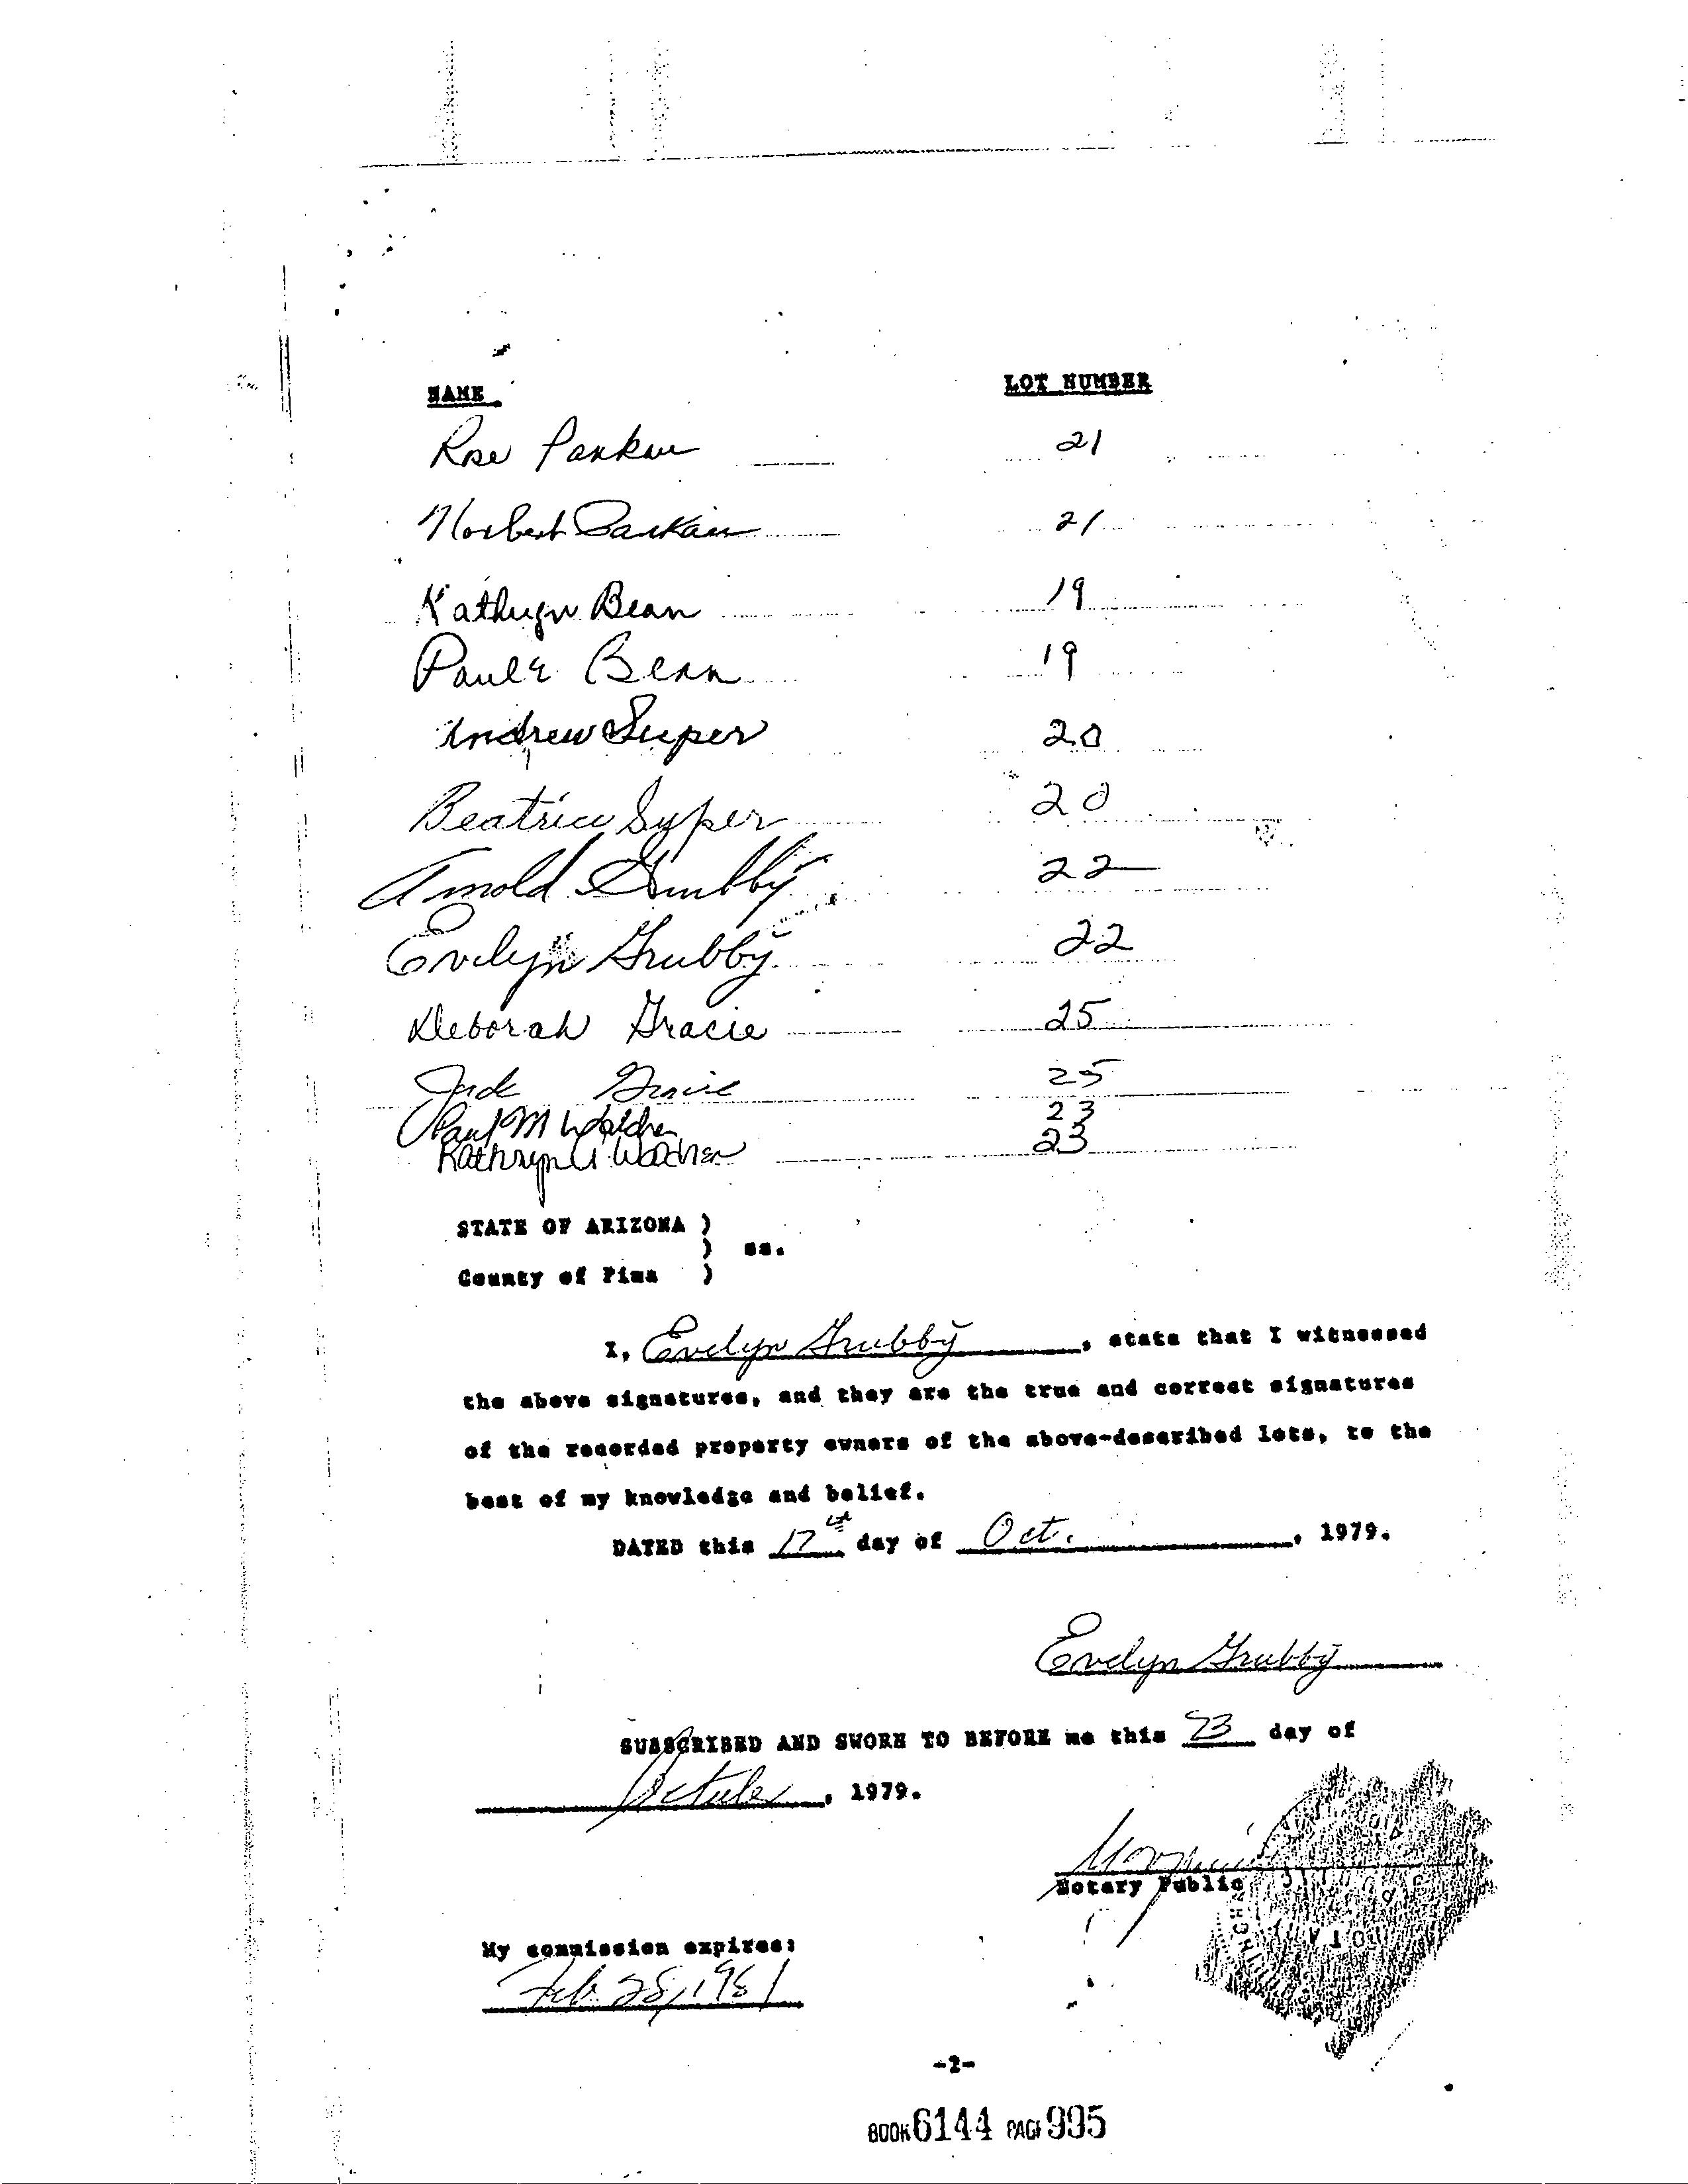 NAME LOT NUMBER
Rose 21
Norbert 21
Kathryn Bean 19
Paul E Bean 19
Andrew Super 20
Beatrice Super 20
Arnold Grubby 22
Evelyn Grubby 22
Deborah Gracie 25
Jack Gracie 25
Paul M 23
Kathryn 23
STATE OF ARIZONA )
) ss.
County of Pima )
I, Evelyn Grubby, state that I witnessed
the above signatures, and they are the true and correct signatures
of the recorded property owners of the above-described lots, to the
best of my knowledge and belief.
DATED this 17th day of Oct., 1979.
Evelyn Grubby
SUBSCRIBED AND SWORN TO BEFORE me this 23 day of
October, 1979.
Notary Public
My commission expires:
Feb 28, 1981
-2-
BOOK 6144 PAGE 995